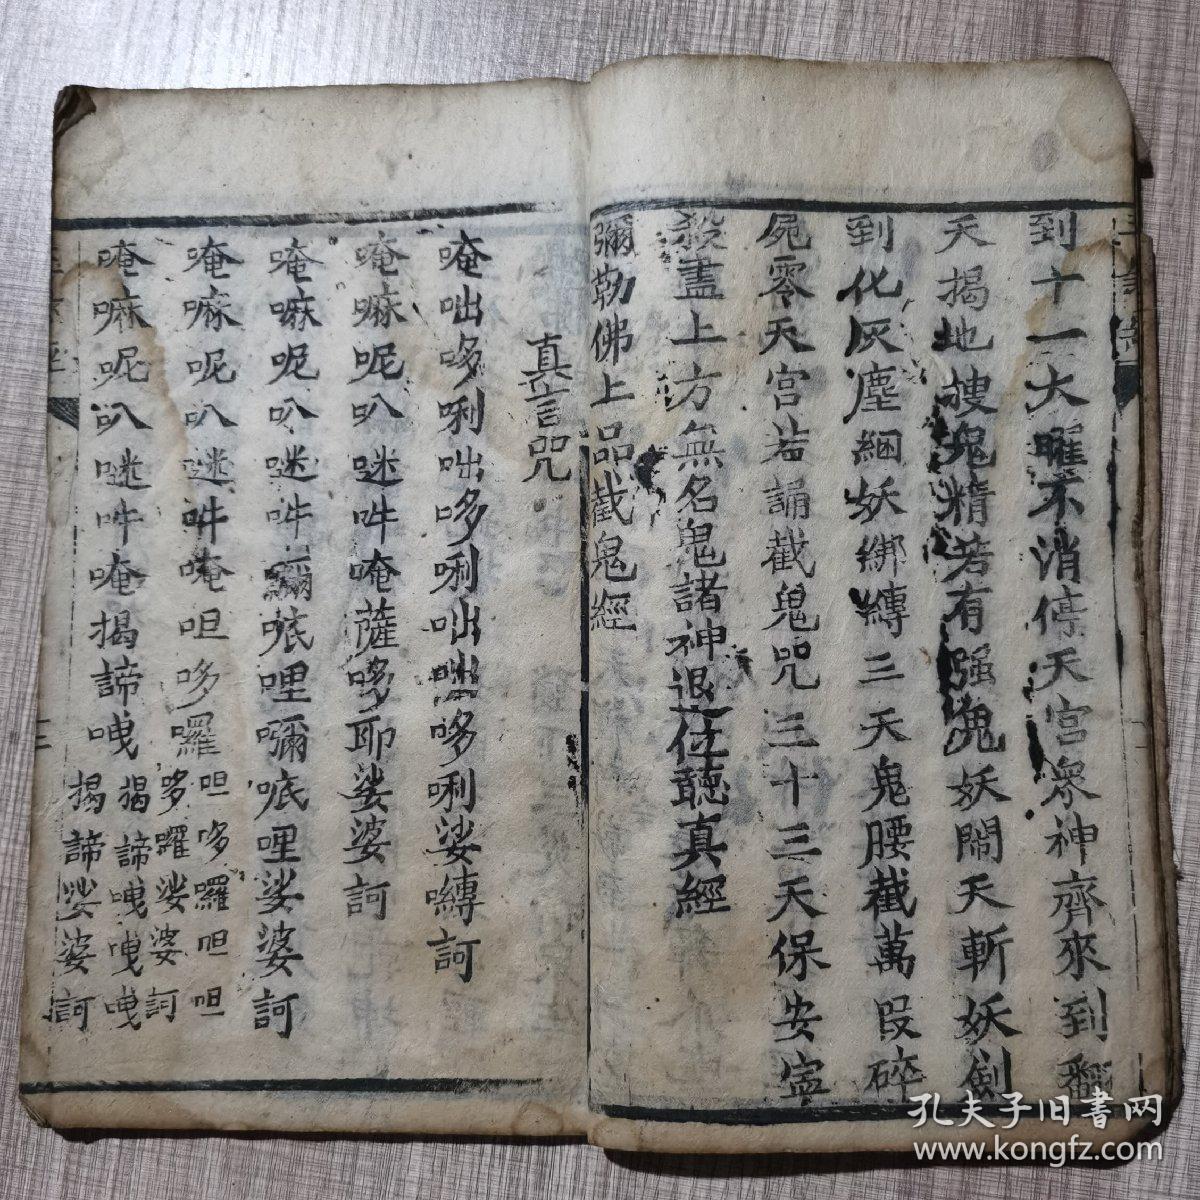 到十一大曜不消停天宮眾神齊來到翻
天揭地搜鬼精若有强鬼妖鬧天斬妖劍
到化灰塵綑妖綁縛三天鬼腰截萬段碎
屍零天宮若誦截鬼咒三十三天保安寧
殺盡上方無名鬼諸神退位聽真經
彌勒佛上品截鬼經
真言咒
唵咄哆唎咄哆唎咄咄哆唎娑嚩訶
唵嘛呢叭𠺗吽唵薩哆耶娑婆訶
唵嘛呢叭𠺗吽彌底哩彌底哩娑婆訶
唵嘛呢叭𠺗吽唵呾哆囉呾哆囉呾呾
哆囉娑婆訶
唵嘛呢叭𠺗吽唵揭諦曳揭諦曳曳曳
揭諦娑婆訶
孔夫子旧书网
www.kongfz.com